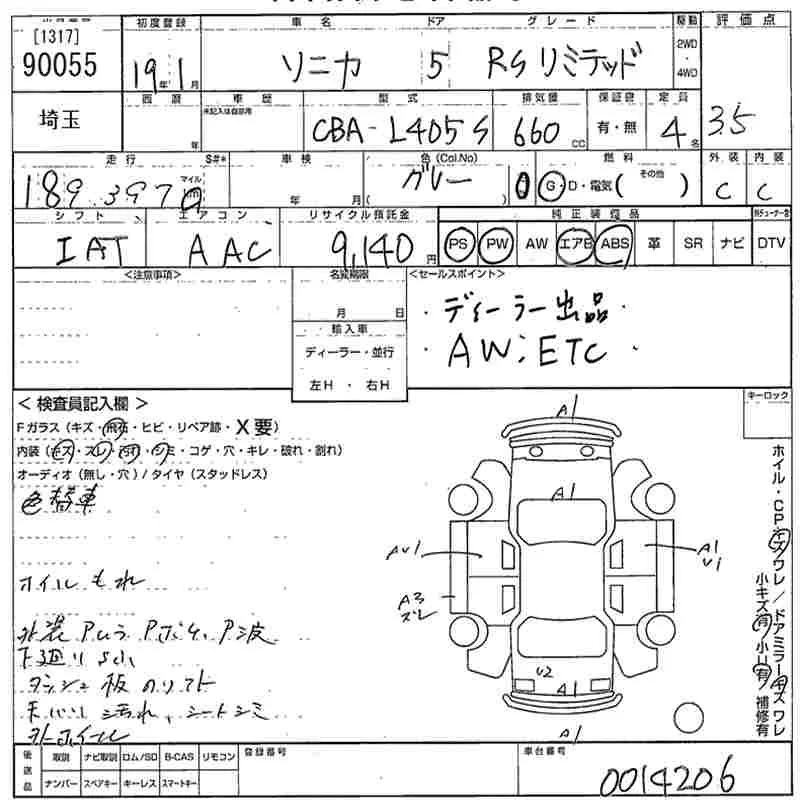 [1317]
90055
初度登録
19年1月
車名
ソニカ
ドア
5
グレード
RSリミテッド
駆動
2WD
・
4WD
評価点
3.5
埼玉
西暦
年
車歴
未記入は自家用
型式
CBA-L405S
排気量
660 CC
保証書
有・無
定員
4名
走行
189,397
マイル
km
S#*
車検
年 月
色(Col.No)
グレー
( )
燃料
G・D・電気( その他 )
外装
C
内装
C
シフト
IAT
エアコン
AAC
リサイクル預託金
9,140円
純正装備品
PS PW AW エアB ABS 革 SR ナビ DTV
<注意事項>
名変期限
月 日
輸入車
ディーラー・並行
左H ・ 右H
<セールスポイント>
・ディーラー出品・
・AW;ETC・
キーロック
< 検査員記入欄 >
Fガラス(キズ・飛石・ヒビ・リペア跡・X要)
内装(キズ・スレ・汚れ・シミ・コゲ・穴・キレ・破れ・割れ)
オーディオ(無し・穴)/タイヤ(スタッドレス)
色替車
オイルもれ
外装 Pムラ Pボケ、P波
下廻りS小
ダッシュ板のリフト
天バリ汚れ、シートシミ
外ホイール
A1
A1
AU1
A1
U1
A3
ズレ
U2
A1
A1
ホイル・CPキズワレ/ドアミラーキズワレ
小キズ有 小U有 補修有
後送品
取説 ナビ取説 ロム/SD B-CAS リモコン
ナンバー スペアキー キーレス スマートキー
登録番号
車台番号
0014206